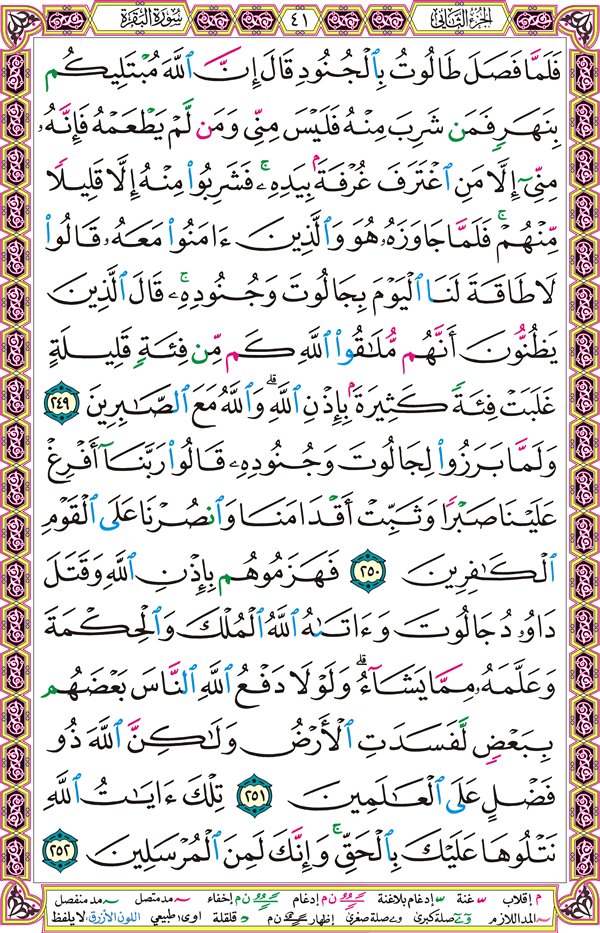 الجزء الثاني ٤١ سورة البقرة
فَلَمَّا فَصَلَ طَالُوتُ بِٱلْجُنُودِ قَالَ إِنَّ ٱللَّهَ مُبْتَلِيكُم
بِنَهَرٍ فَمَن شَرِبَ مِنْهُ فَلَيْسَ مِنِّى وَمَن لَّمْ يَطْعَمْهُ فَإِنَّهُۥ
مِنِّىٓ إِلَّا مَنِ ٱغْتَرَفَ غُرْفَةَۢ بِيَدِهِۦ ۚ فَشَرِبُوا۟ مِنْهُ إِلَّا قَلِيلًا
مِّنْهُمْ ۚ فَلَمَّا جَاوَزَهُۥ هُوَ وَٱلَّذِينَ ءَامَنُوا۟ مَعَهُۥ قَالُوا۟
لَا طَاقَةَ لَنَا ٱلْيَوْمَ بِجَالُوتَ وَجُنُودِهِۦ ۚ قَالَ ٱلَّذِينَ
يَظُنُّونَ أَنَّهُم مُّلَٰقُوا۟ ٱللَّهِ كَم مِّن فِئَةٍ قَلِيلَةٍ
غَلَبَتْ فِئَةً كَثِيرَةَۢ بِإِذْنِ ٱللَّهِ ۗ وَٱللَّهُ مَعَ ٱلصَّٰبِرِينَ ٢٤٩
وَلَمَّا بَرَزُوا۟ لِجَالُوتَ وَجُنُودِهِۦ قَالُوا۟ رَبَّنَآ أَفْرِغْ
عَلَيْنَا صَبْرًا وَثَبِّتْ أَقْدَامَنَا وَٱنصُرْنَا عَلَى ٱلْقَوْمِ
ٱلْكَٰفِرِينَ ٢٥٠ فَهَزَمُوهُم بِإِذْنِ ٱللَّهِ وَقَتَلَ
دَاوُۥدُ جَالُوتَ وَءَاتَىٰهُ ٱللَّهُ ٱلْمُلْكَ وَٱلْحِكْمَةَ
وَعَلَّمَهُۥ مِمَّا يَشَآءُ ۗ وَلَوْلَا دَفْعُ ٱللَّهِ ٱلنَّاسَ بَعْضَهُم
بِبَعْضٍ لَّفَسَدَتِ ٱلْأَرْضُ وَلَٰكِنَّ ٱللَّهَ ذُو
فَضْلٍ عَلَى ٱلْعَٰلَمِينَ ٢٥١ تِلْكَ ءَايَٰتُ ٱللَّهِ
نَتْلُوهَا عَلَيْكَ بِٱلْحَقِّ ۚ وَإِنَّكَ لَمِنَ ٱلْمُرْسَلِينَ ٢٥٢
م إقلاب غنة إدغام بلاغنة ن م إدغام ن م إخفاء مد متصل مد منفصل
المد اللازم صلة كبرى صلة صغرى إظهار ن م قلقلة اوى: طبيعي اللون الأزرق: لا يلفظ